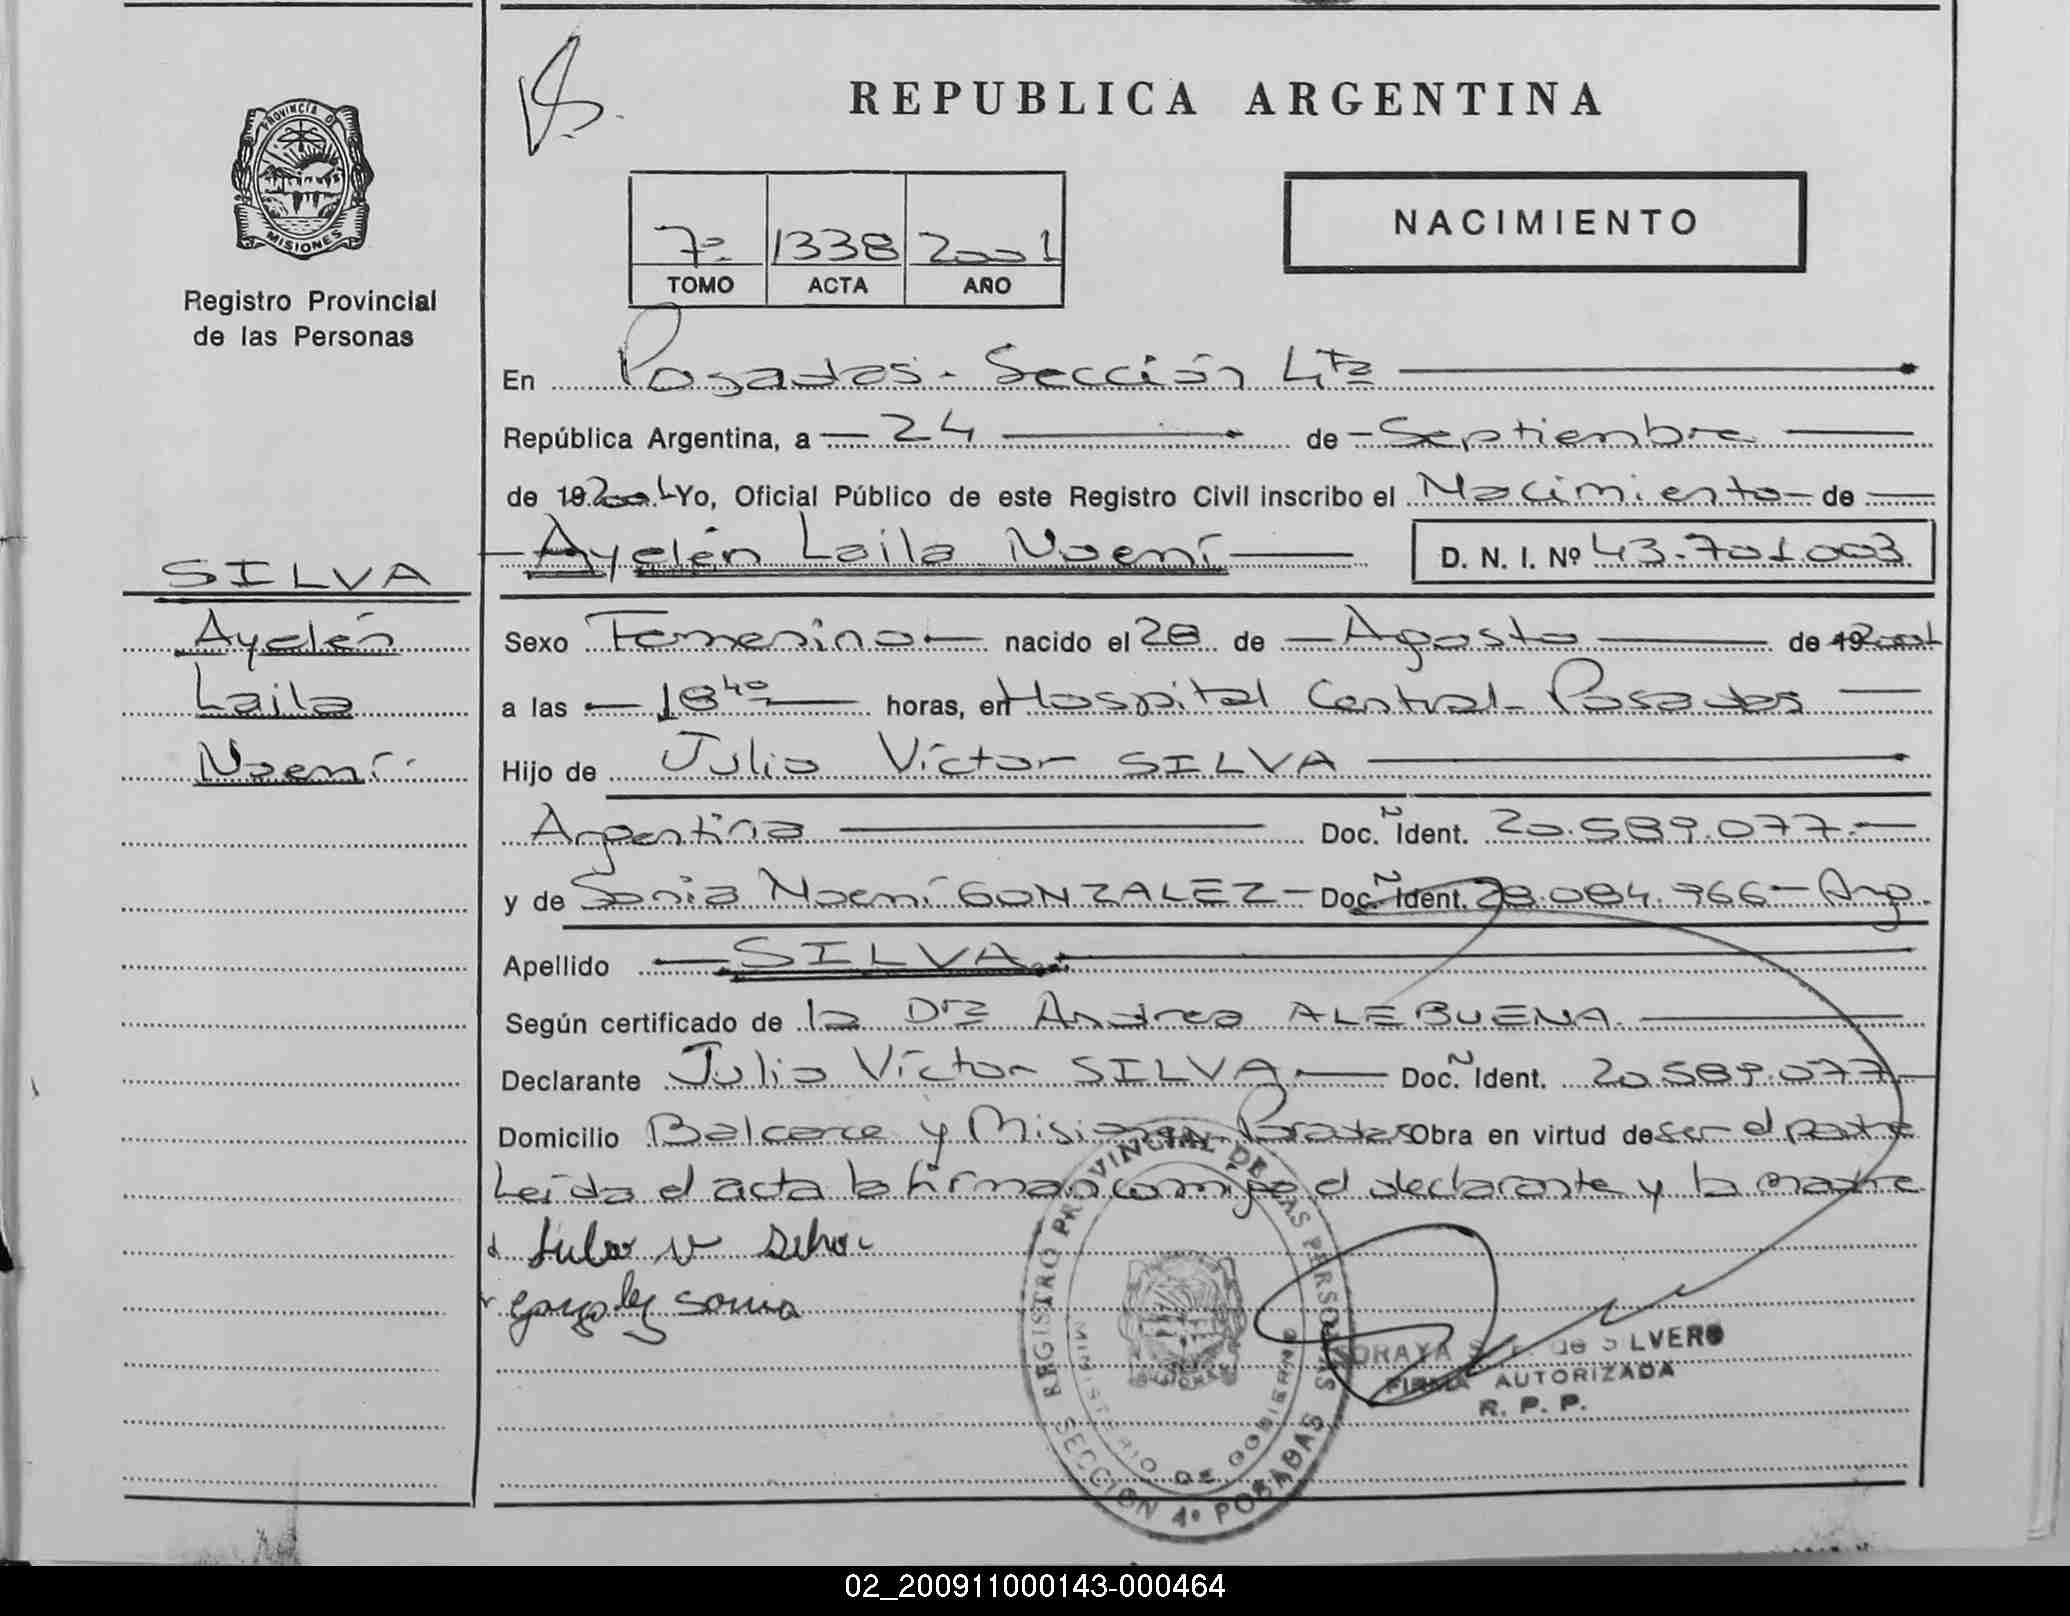 REPUBLICA ARGENTINA
PROVINCIA D
MISIONES
Registro Provincial
de las Personas
7º 1338 2001
TOMO ACTA AÑO
NACIMIENTO
En Posadas - Sección 4ta
República Argentina, a 24 de Septiembre
de 19 2001 Yo, Oficial Público de este Registro Civil inscribo el Nacimiento de
Ayelén Laila Noemí D. N. I. Nº 43.701.003
SILVA
Ayelén
Laila
Noemí
Sexo Femenino nacido el 28 de Agosto de 19 2001
a las 18 40 horas, en Hospital Central - Posadas
Hijo de Julio Víctor SILVA
Argentina Doc. Ñ Ident. 20.589.077.
y de Sonia Noemí GONZALEZ - Doc. Ñ Ident. 28.084.966 - Arg.
Apellido SILVA
Según certificado de la Dra Andrea ALEBUENA
Declarante Julio Víctor SILVA Doc. Ñ Ident. 20.589.077
Domicilio Balcarce y Misiones - Posadas Obra en virtud de ser el padre
Leída el acta la firman conmigo el declarante y la madre
Julio V Silva
Gonzalez Sonia
REGISTRO PROVINCIAL DE LAS PERSONAS
MINISTERIO DE GOBIERNO
SECCION 4º POSADAS
SORAYA de SILVERO
FIRMA AUTORIZADA
R. P. P.
02_200911000143-000464